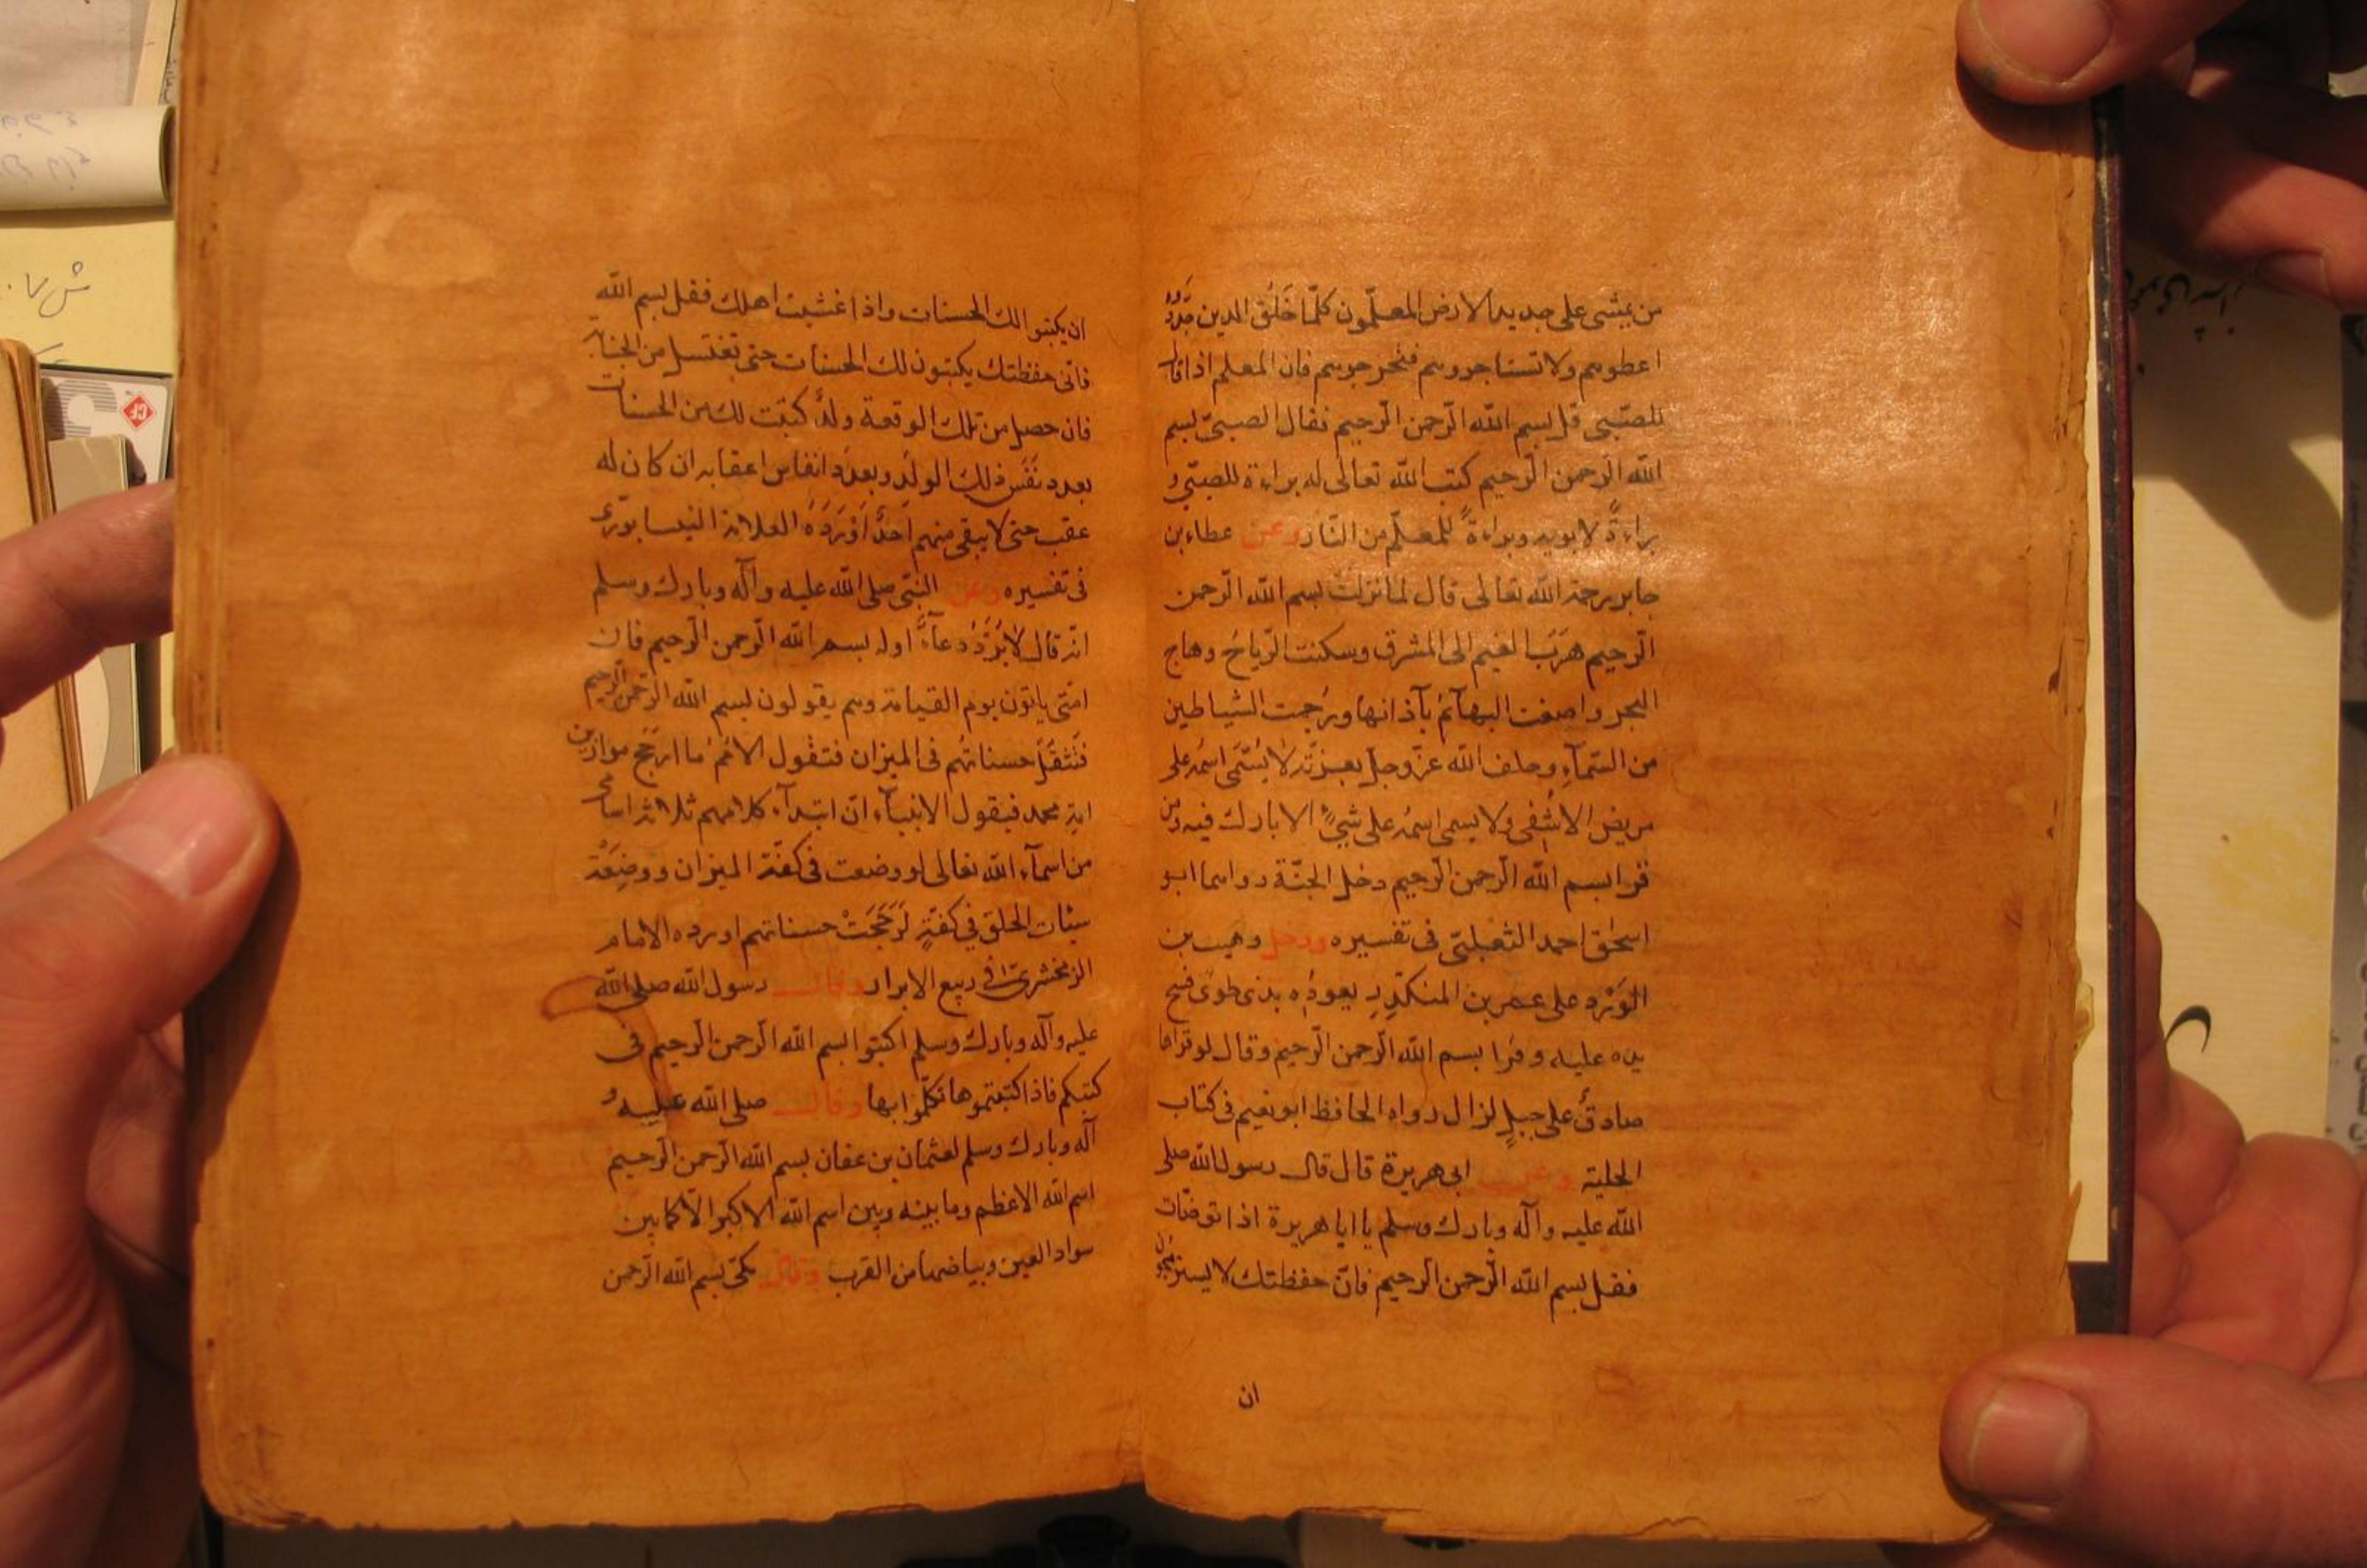 من يمشى على جديد الارض المعلّمون كلّما خَلُق الدين جَدَّدُوه
اعطوهم ولا تستاجروهم فتحرجوهم فان المعلم اذا قال
للصّبى قل بسم الله الرّحمن الرّحيم فقال الصبىّ بسم
الله الرّحمن الرّحيم كتب الله تعالى له براءة للصبّى و
براءةً لابويه وبراءةً للمعلّم من النّار وعن عطاء بن
جابر رحمة الله تعالى قال لما نزلت بسم الله الرّحمن
الرّحيم هَرَبَ الغيم الى المشرق وسكنت الرّياحُ وهاج
البحر واصغت البهآئمُ بآذانها ورُجمت الشياطين
من السّمآءِ وحلف الله عزّ وجلّ بعزّته لا يُسَمّى اسمُه على
مريض الا شُفى ولا يسمى اسمُه على شىءٍ الا بارك فيه ومن
قرا بسم الله الرّحمن الرّحيم دخل الجنّة رواها ابو
اسحٰق احمد الثعبلىّ فى تفسيره ودخل وهيب بن
الوَرْدِ على عمر بن المنكدِرِ يعودُه بذى طوًى فتح
يده عليه وقرا بسم الله الرّحمن الرّحيم وقال لو قراها
صادقٌ على جبلٍ لزال رواه الحافظ ابو نعيم فى كتاب
الحلية وعن ابى هريرة قال قال رسول الله صلى
الله عليه وآله وبارك وسلم يا ابا هريرة اذا توضّات
فقل بسم الله الرّحمن الرّحيم فانّ حفظتك لا يستريحون
ان
ان يكتبوا لك الحسنات واذا غشيت اهلك فقل بسم الله
فانّ حفظتك يكتبون لك الحسنات حتى تغتسل من الجنابة
فان حصل من تلك الوقعة ولدٌ كتبت لك من الحسنات
بعدد نَفَس ذلك الولدِ وبعدد انفاس اعقابه ان كان له
عقب حتى لا يبقى منهم احدٌ اَوْرَدَهُ العلامة النيسابورّى
فى تفسيره وعن النبىّ صلى الله عليه وآله وبارك وسلم
انّه قال لا يُرَدُّ دعآءٌ اوله بسم الله الرّحمن الرّحيم فان
امّتى ياتون يوم القيامة وهم يقولون بسم الله الرّحمن الرّحيم
فتثقُلُ حسناتُهم فى الميزان فتقول الاممُ ما ارجح موازين
امة محمد فيقول الانبيآء انّ ابتدآء كلامهم ثلاثة اسامى
من اسمآء الله تعالى لو وضعت فى كفّة الميزان ووضِعَتْ
سيئات الخلق فى كفّةٍ لَرَجَحَتْ حسناتهم اورده الامام
الزمخشرىّ فى ربيع الابرار وقال رسول الله صلى الله
عليه وآله وبارك وسلم اكتبوا بسم الله الرّحمن الرّحيم فى
كتبكم فاذا كتبتموها تكلّموا بها وقال صلى الله عليه و
آله وبارك وسلم لعثمان بن عفان بسم الله الرّحمن الرّحيم
اسم الله الاعظم وما بينه وبين اسم الله الاكبر الّا كما بين
سواد العين وبياضها من القرب وقال مكىّ بسم الله الرّحمن